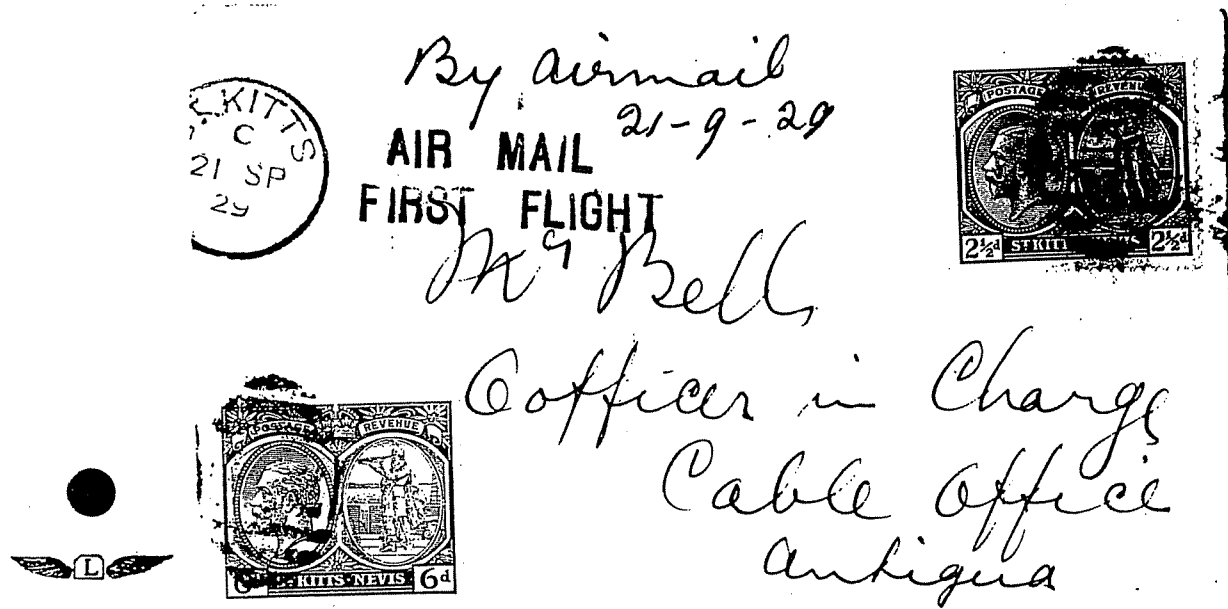 By airmail
21-9-29
AIR MAIL
FIRST FLIGHT
KITTS
C
21 SP
29
POSTAGE REVENUE
2½d ST KITTS NEVIS 2½d
Mr Bell
Oofficer in Charge
Cable Office
Antigua
POSTAGE REVENUE
6d KITTS·NEVIS 6d
L